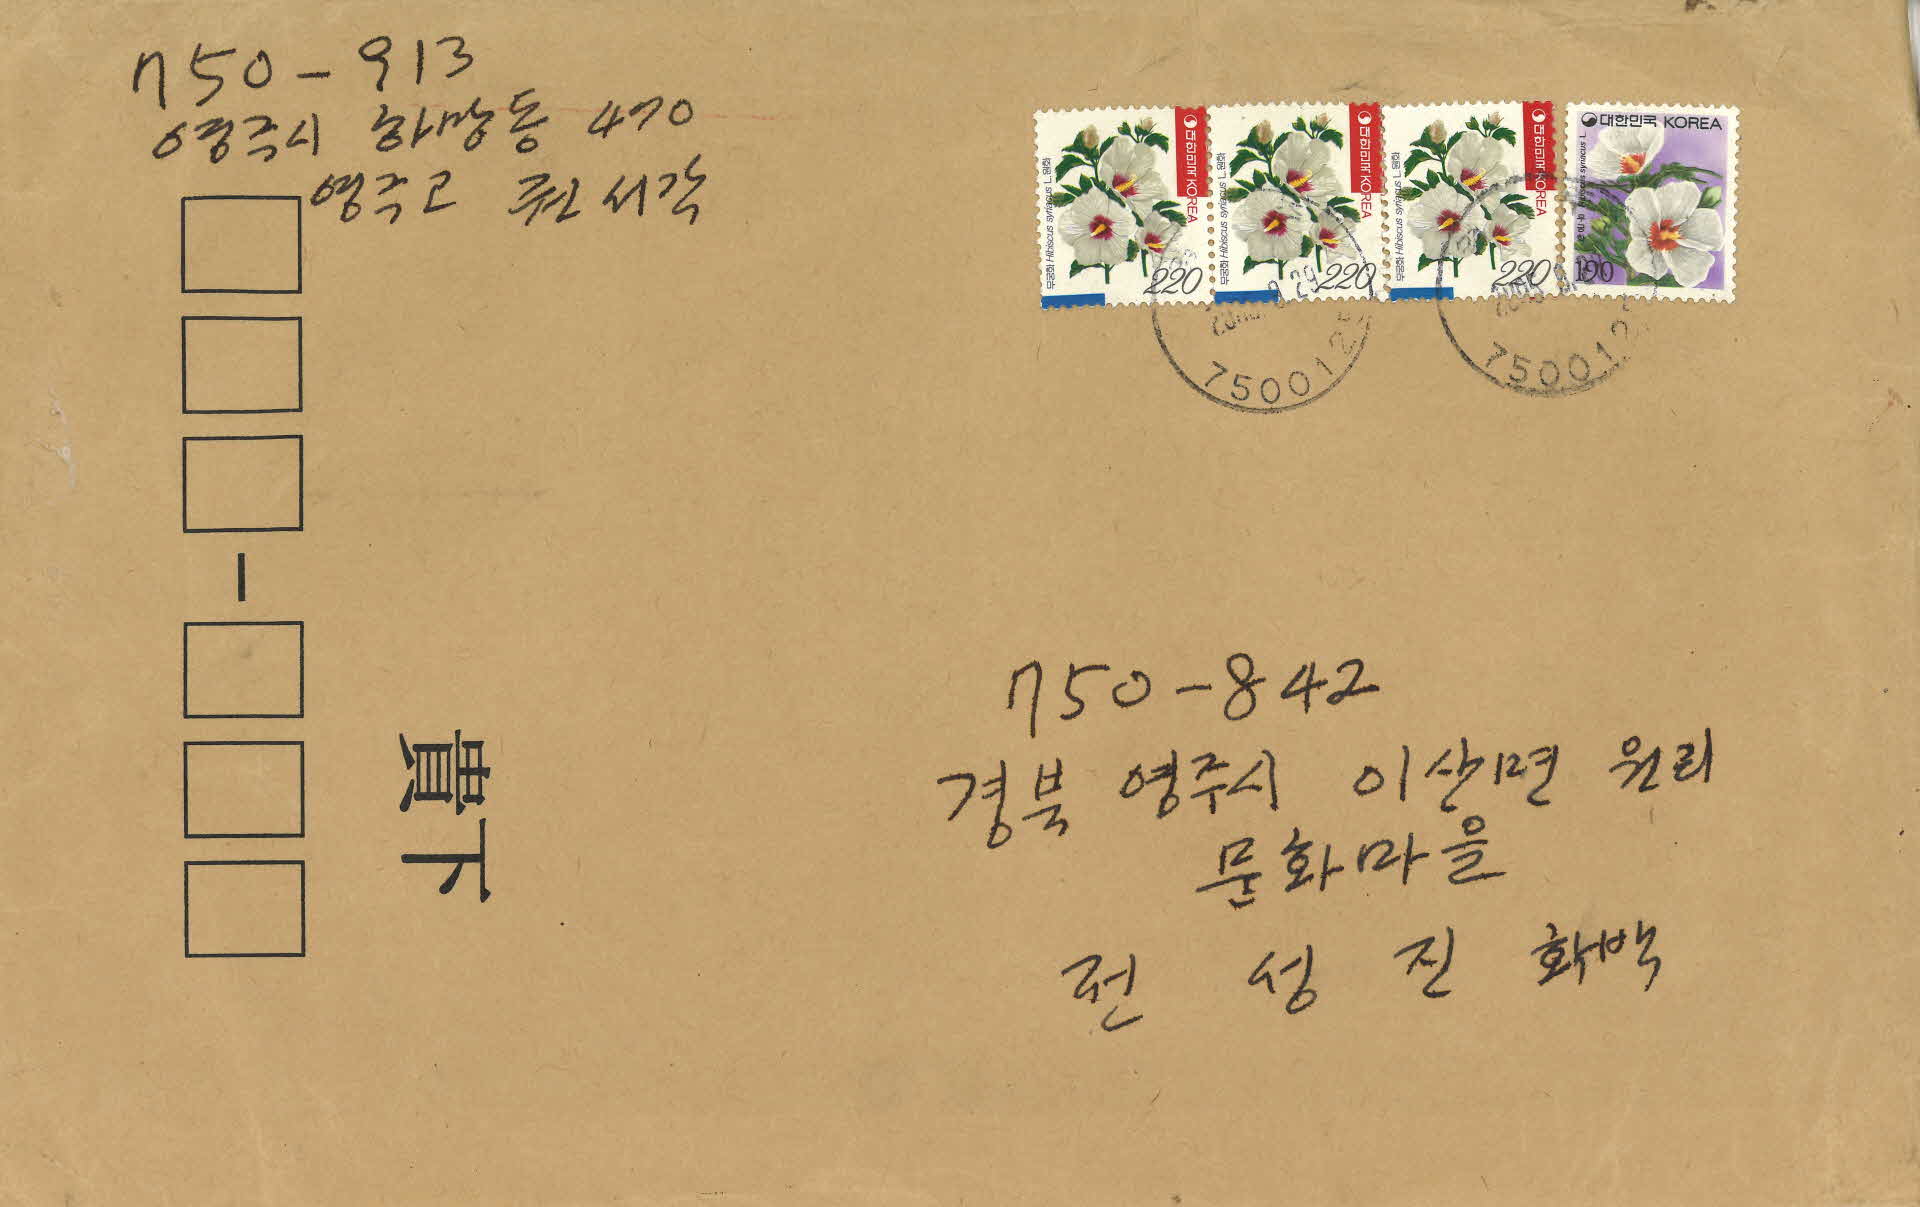 750-913
영주시 하망동 470
영주고 권서각
대한민국 KOREA
무궁화 Hibiscus syriacus L.
220
대한민국 KOREA
무궁화 Hibiscus syriacus L.
220
대한민국 KOREA
무궁화 Hibiscus syriacus L.
220
대한민국 KOREA
Hibiscus syriacus L.
190
750012
750012
貴下
750-842
경북 영주시 이산면 원리
문화마을
전 성 진 화백